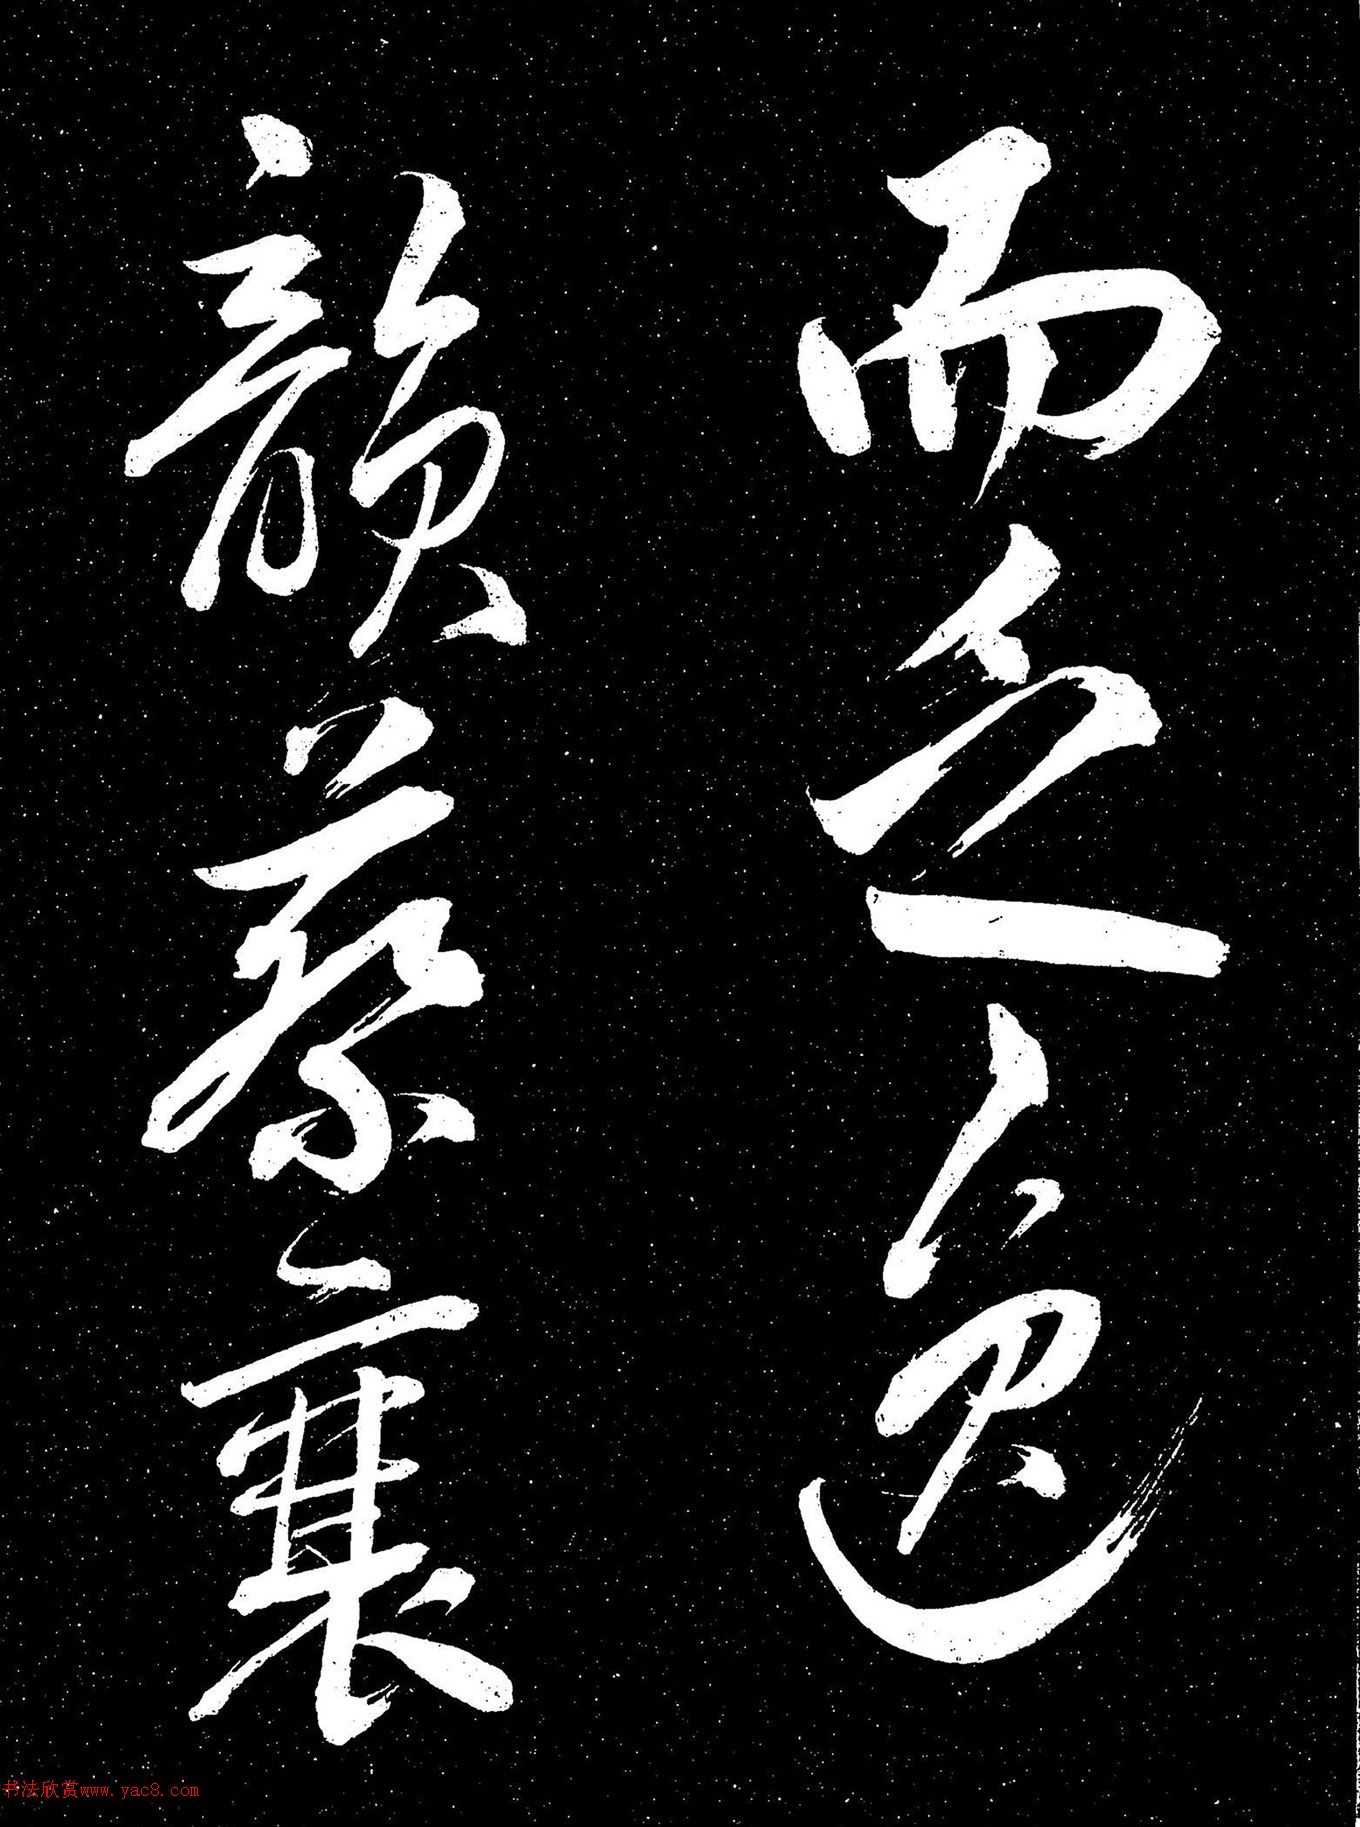 而乏逸
韻蔡襄
书法欣赏www.yac8.com